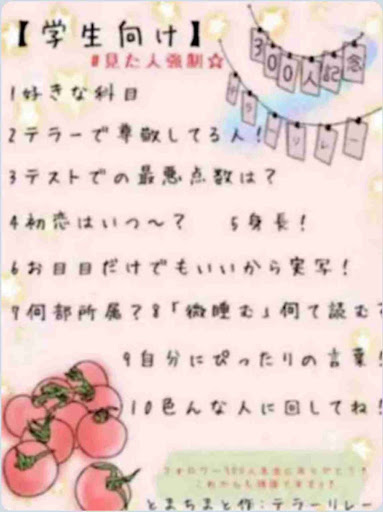 【学生向け】
#見た人強制☆
300人記念
テラーリレー
1好きな科目
2テラーで尊敬してる人!
3テストでの最悪点数は?
4初恋はいつ〜? 5身長!
6お目目だけでもいいから実写!
7何部所属?8「微睡む」何て読む?
9自分にぴったりの言葉!
10色んな人に回してね!
フォロワー300人本当にありがとう!
これからも頑張ります!
とまちまと作:テラーリレー